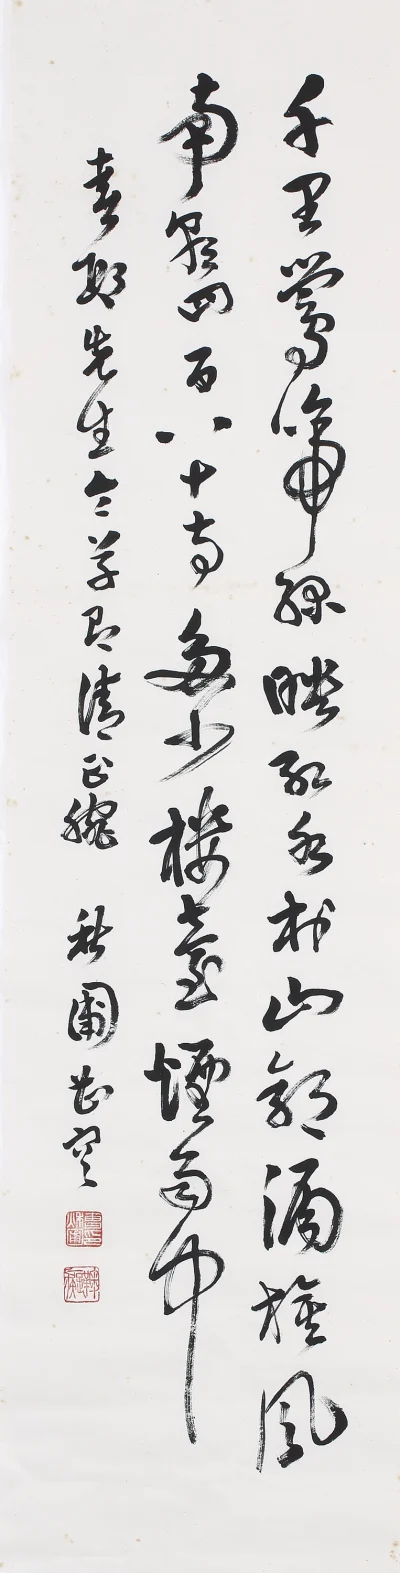 千里鶯啼綠映紅水村山郭酒旗風
南朝四百八十寺多少樓臺煙雨中
先生 即請正腕 秋圃